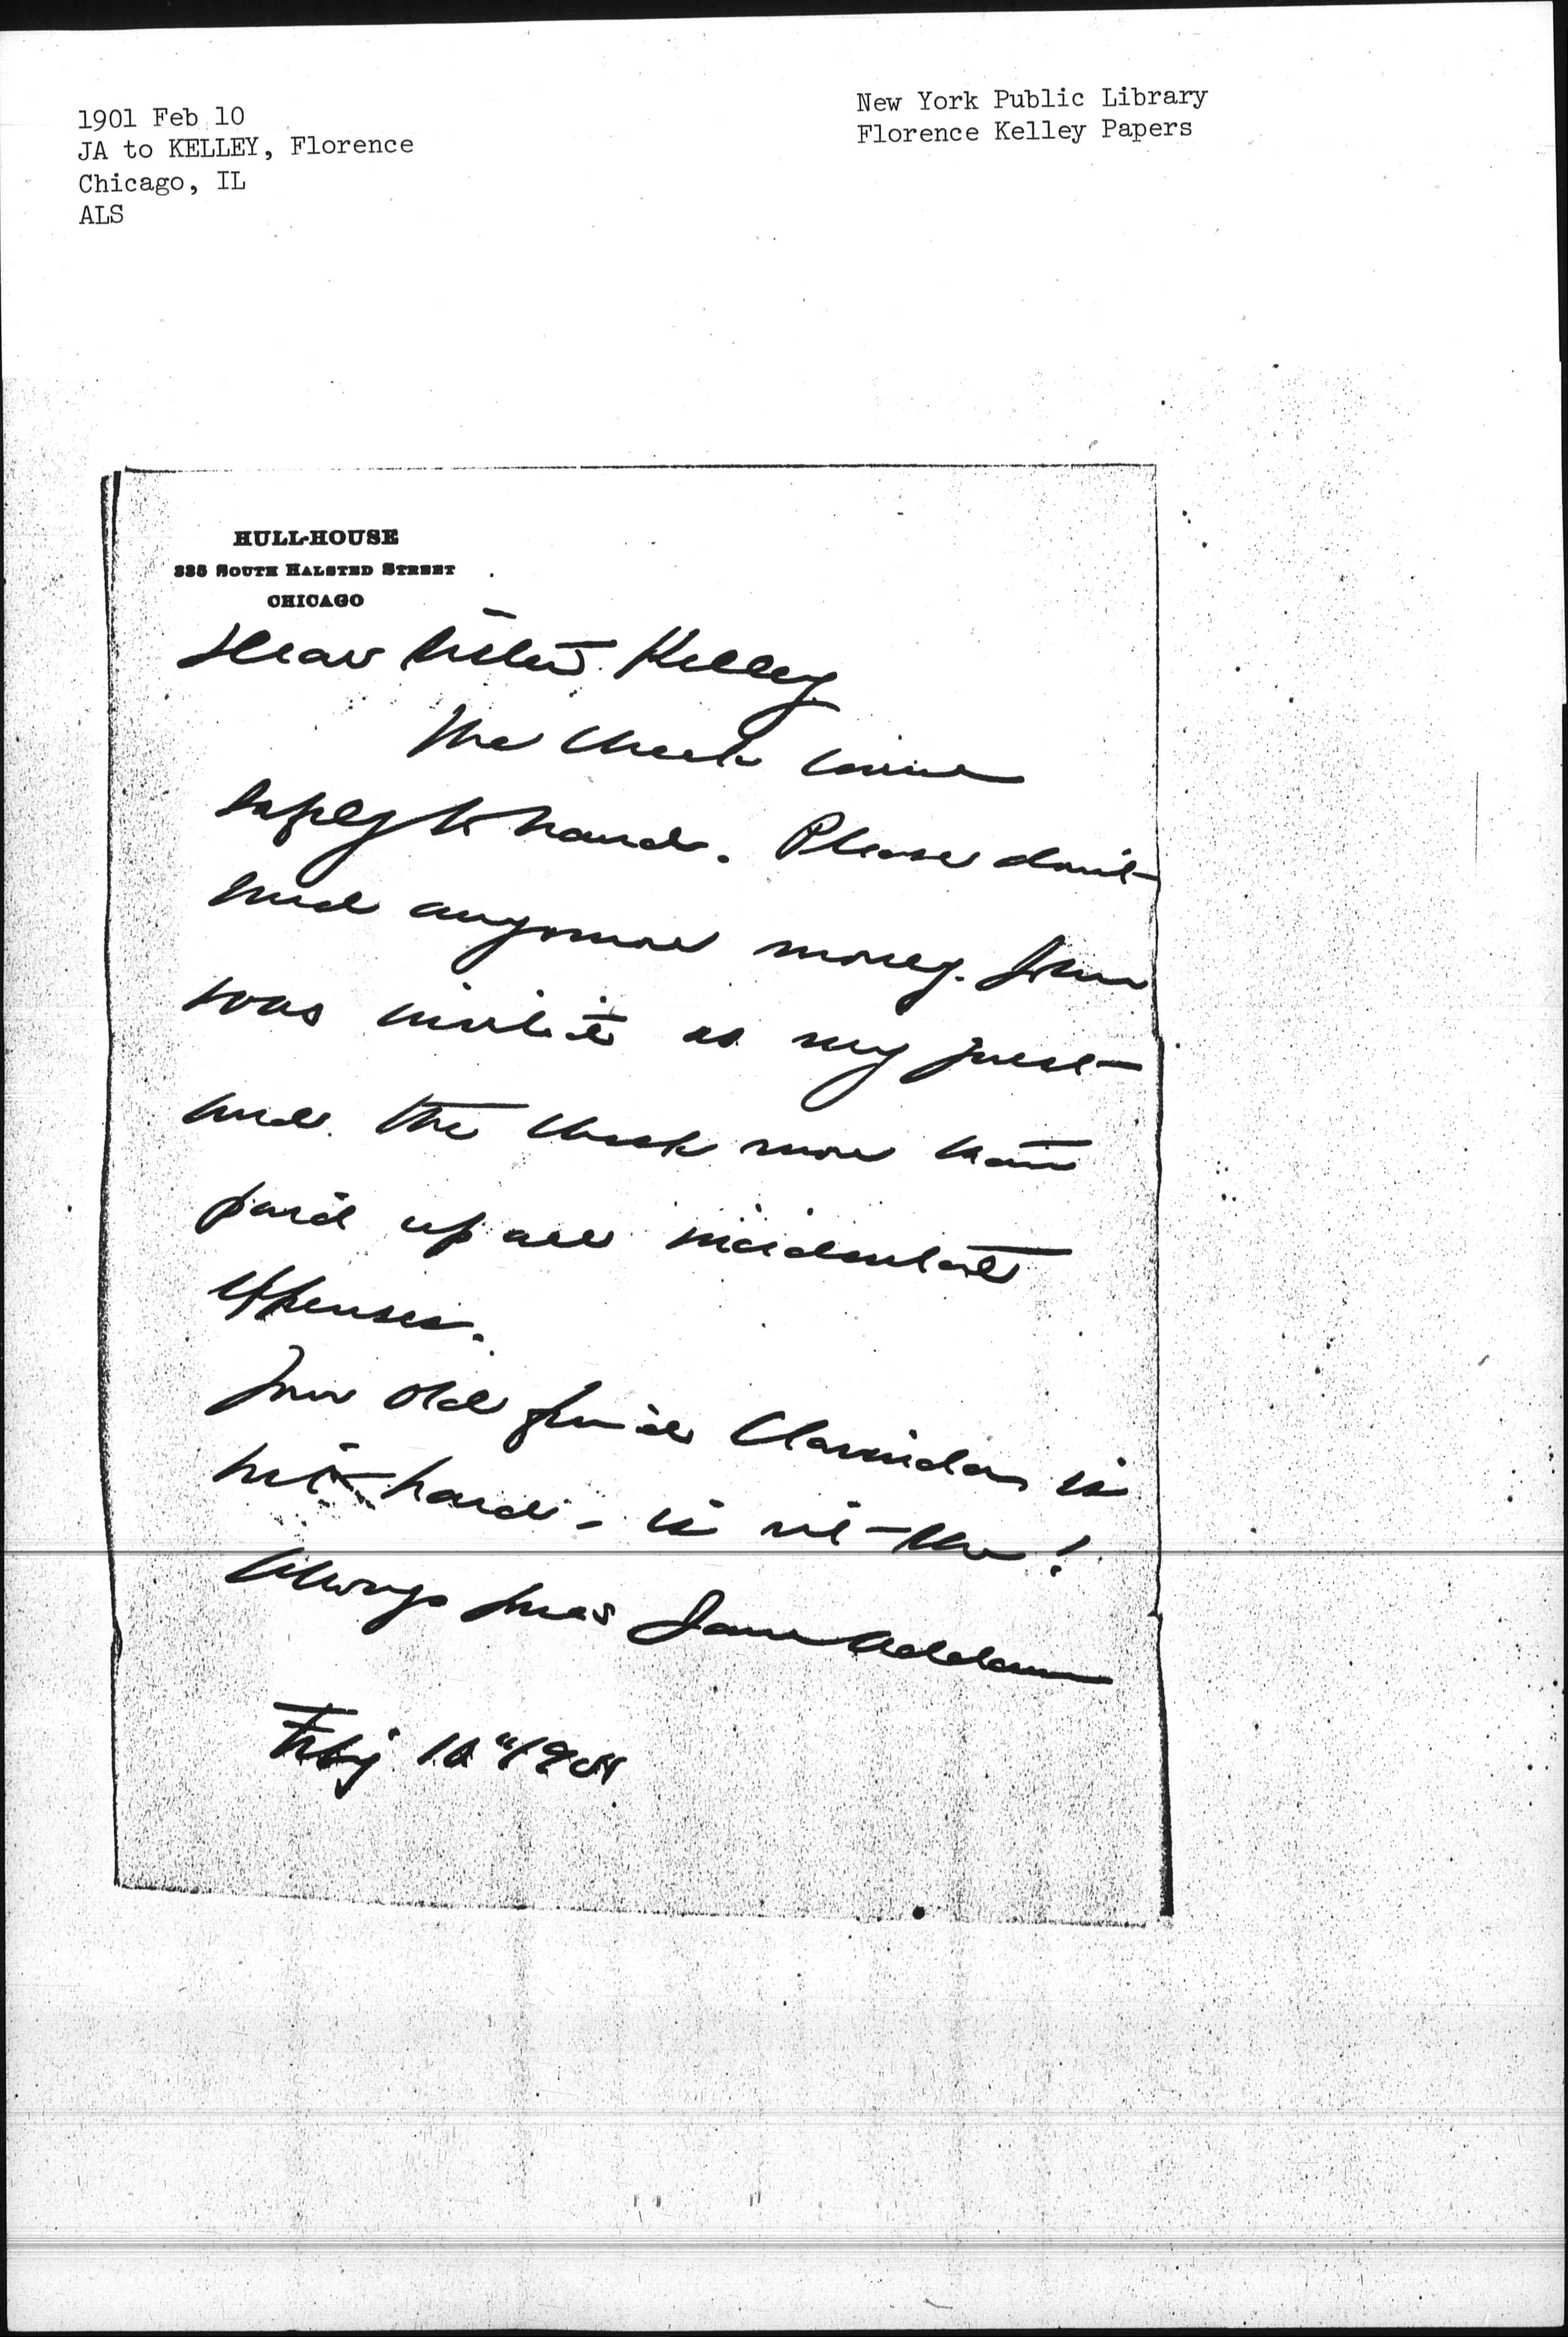 1901 Feb 10
JA to KELLEY, Florence
Chicago, IL
ALS
New York Public Library
Florence Kelley Papers
HULL-HOUSE
335 SOUTH HALSTED STREET
CHICAGO
Dear Sister Kelley
The check came
safely to hand. Please don't
send anymore money.
was invited as my guest
and the check more than
paid up all incidental
expenses.
Your old friend is
hit hard - is not he!
Always yours Jane Addams
Feby 10" 1901